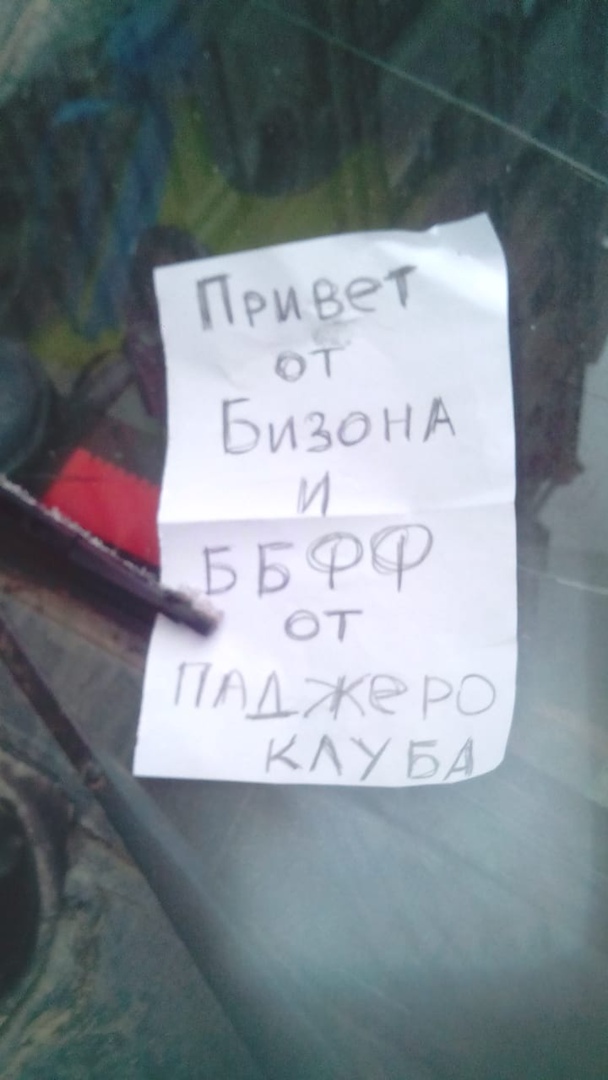 Привет
от
Бизона
и
ББФФ
от
ПАДЖеРО
КЛУБА